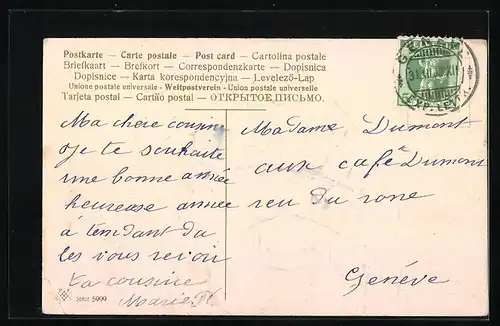 Postkarte – Carte postale – Post card – Cartolina postale
Briefkaart – Brefkort – Correspondenzkarte – Dopisnica
Dopisnice – Karta korespondencyjna – Levelező-Lap
Unione postale universale - Weltpostverein - Union postale universelle
Tarjeta postal – Cartão postal – ОТКРЫТОЕ ПИСЬМО.
Ma chere cousine
je te souhaite
une bonne année
heureuse année
à tendant da
les vous revoir
ta cousine
Marie
Serie 5999
Madame Dumont
aux café Dumont
reu du rone
Genève